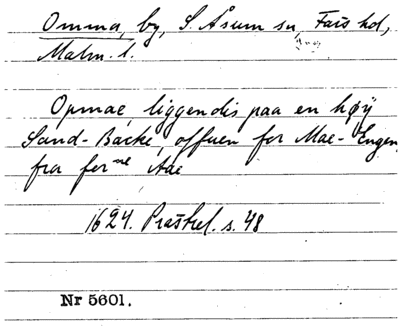 Omma, by, S. Åsum sn, Färs hd,
Malm. l.
Opmae, liggendis paa en høÿ
Sand-Backe, offuen for Mae-Engen
fra for^ne Aae
1624. Prästrel. s. 48
Nr 5601.